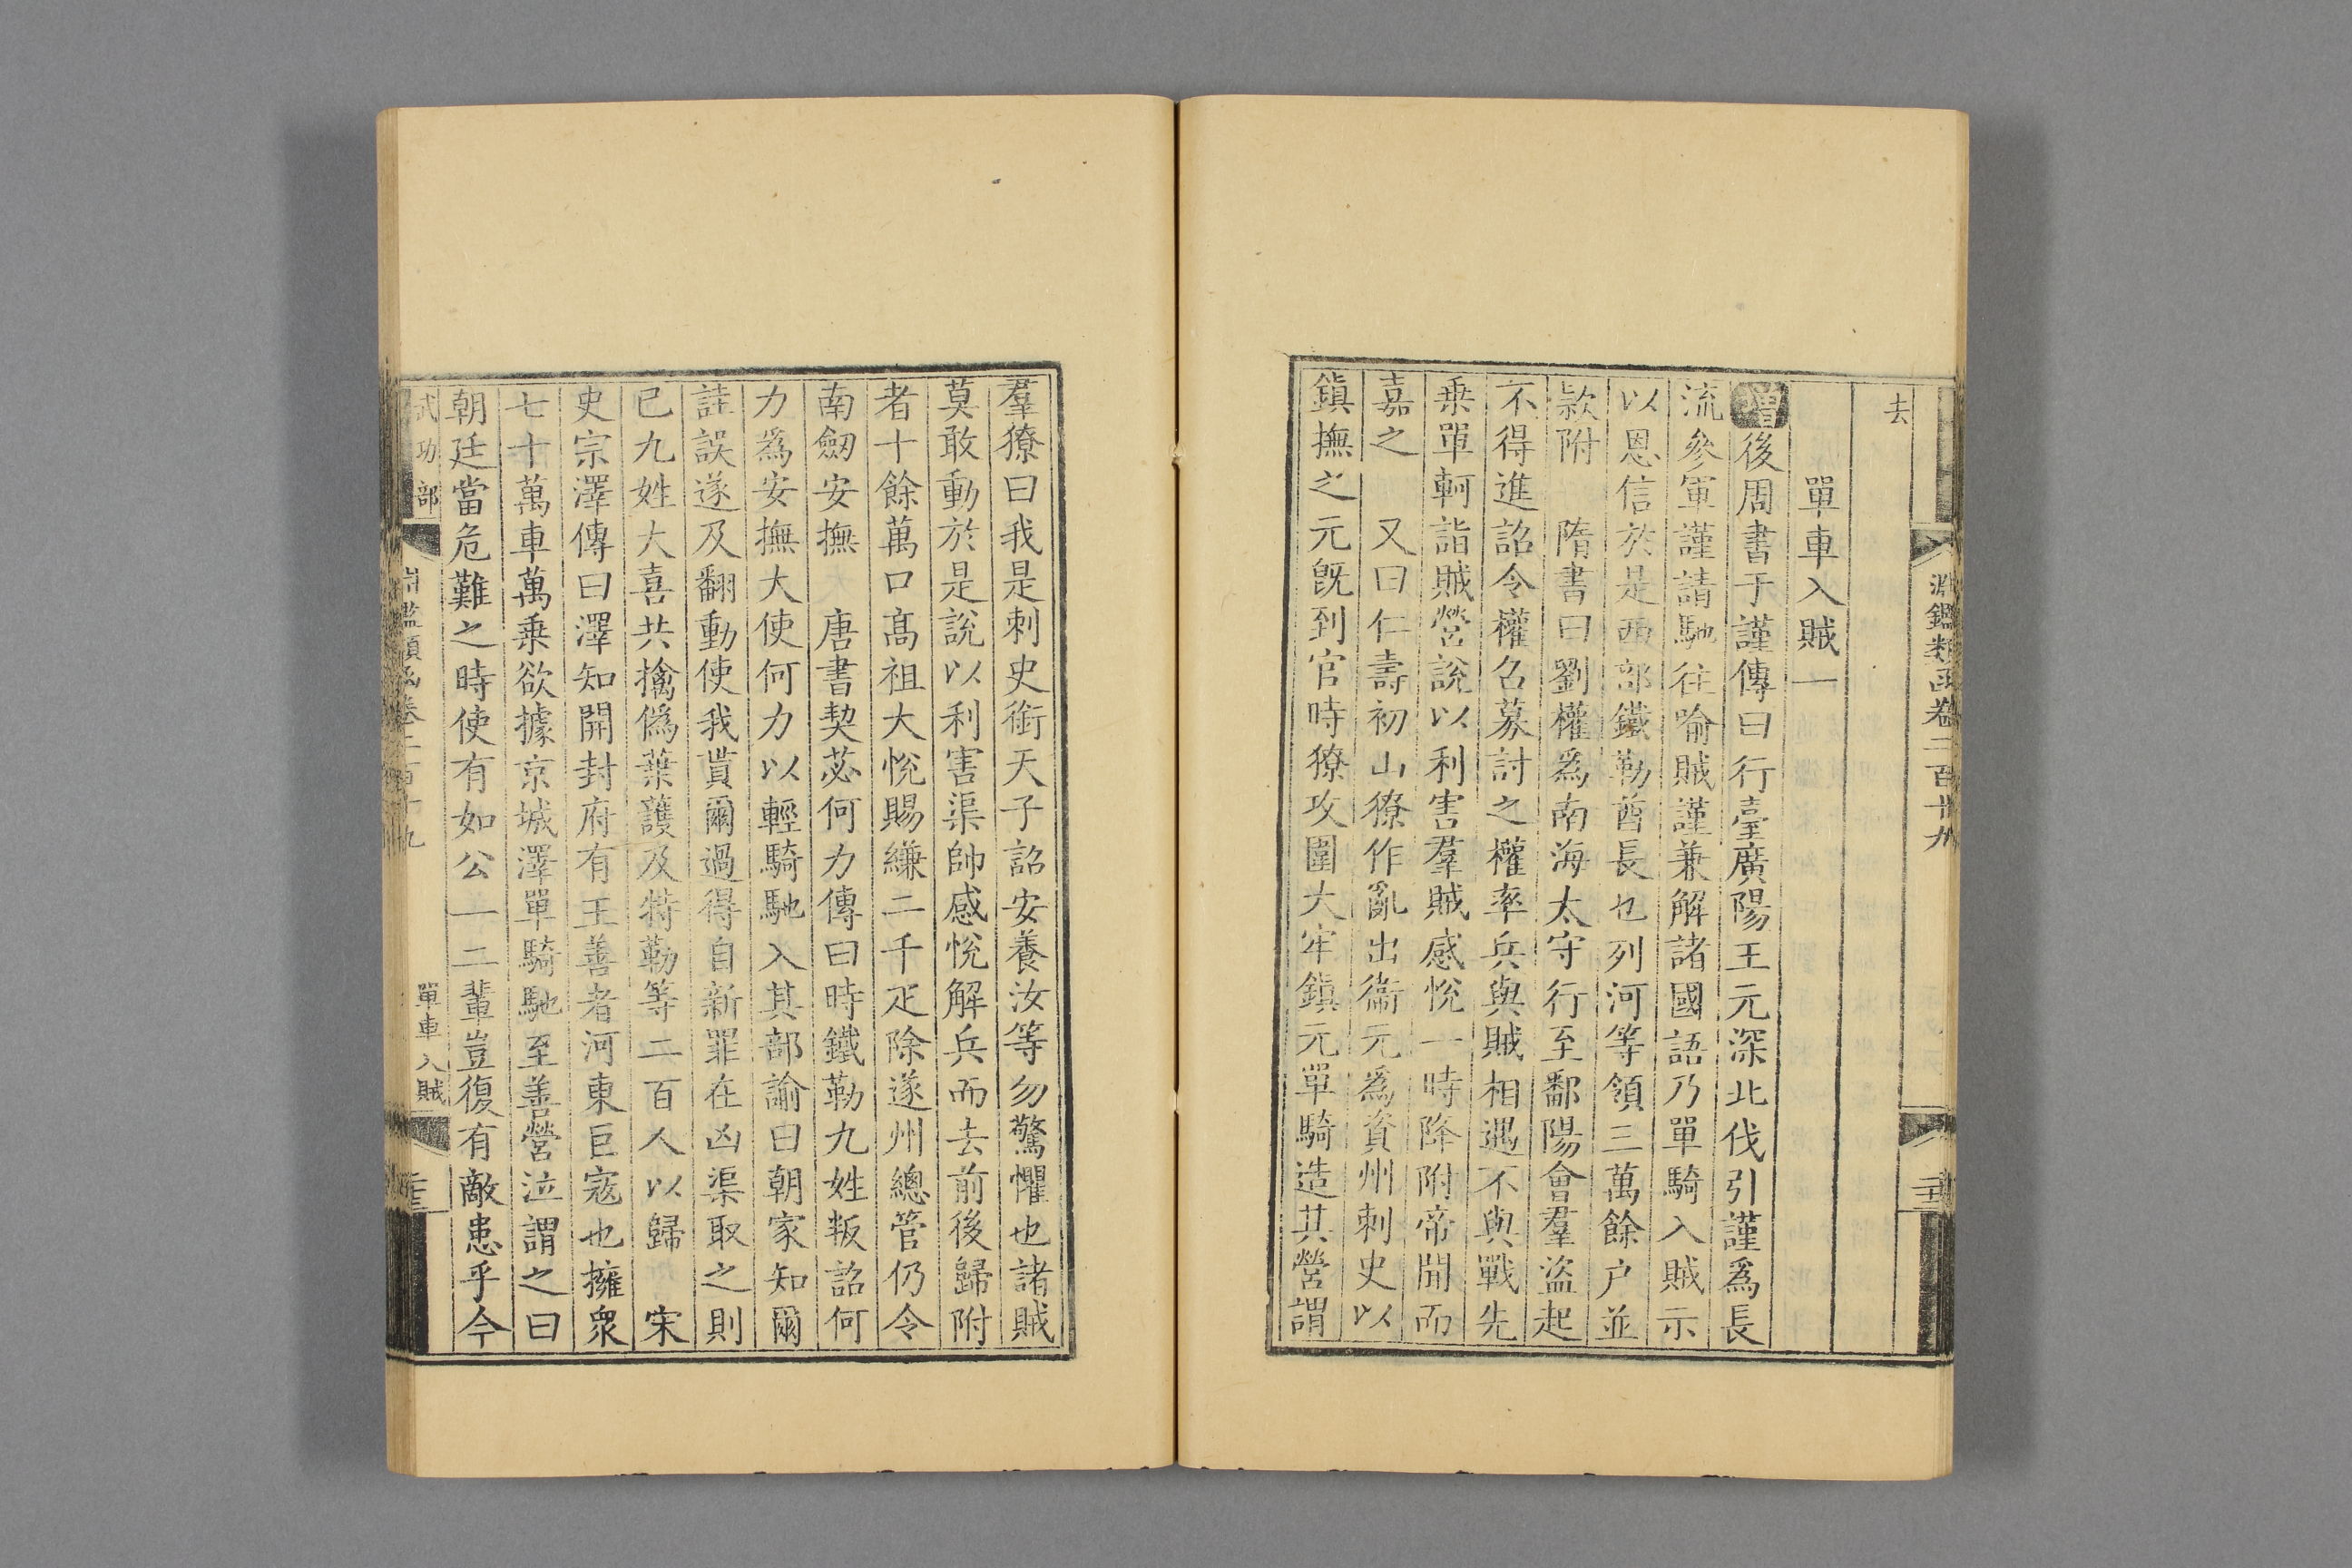 淵鑑類函卷二百十九
去
單車入賊一
增後周書于謹傳曰行臺廣陽王元深北伐引謹爲長
流參軍謹請馳往喻賊謹兼解諸國語乃單騎入賊示
以恩信於是西部鐵勒酋長乜列河等領三萬餘户並
款附　隋書曰劉權爲南海太守行至鄱陽會羣盜起
不得進詔令權召募討之權率兵與賊相遇不與戰先
乗單軻詣賊營說以利害羣賊感悅一時降附帝聞而
嘉之　又曰仁壽初山獠作亂出衞元爲資州刺史以
鎭撫之元旣到官時獠攻圍大牢鎭元單騎造其營謂
羣獠曰我是刺史銜天子詔安養汝等勿驚懼也諸賊
莫敢動於是說以利害渠帥感悅解兵而去前後歸附
者十餘萬口髙祖大悅賜縑二千疋除遂州總管仍令
南劒安撫　唐書契苾何力傳曰時鐵勒九姓叛詔何
力爲安撫大使何力以輕騎馳入其部諭曰朝家知爾
詿誤遂及翻動使我貰爾過得自新罪在凶渠取之則
已九姓大喜共擒僞葉護及特勒等二百人以歸　宋
史宗澤傳曰澤知開封府有王善者河東巨寇也擁衆
七十萬車萬乗欲據京城澤單騎馳至善營泣謂之曰
朝廷當危難之時使有如公一二輩豈復有敵患乎今
武功部
淵鑑類函卷二百十九
單車入賊